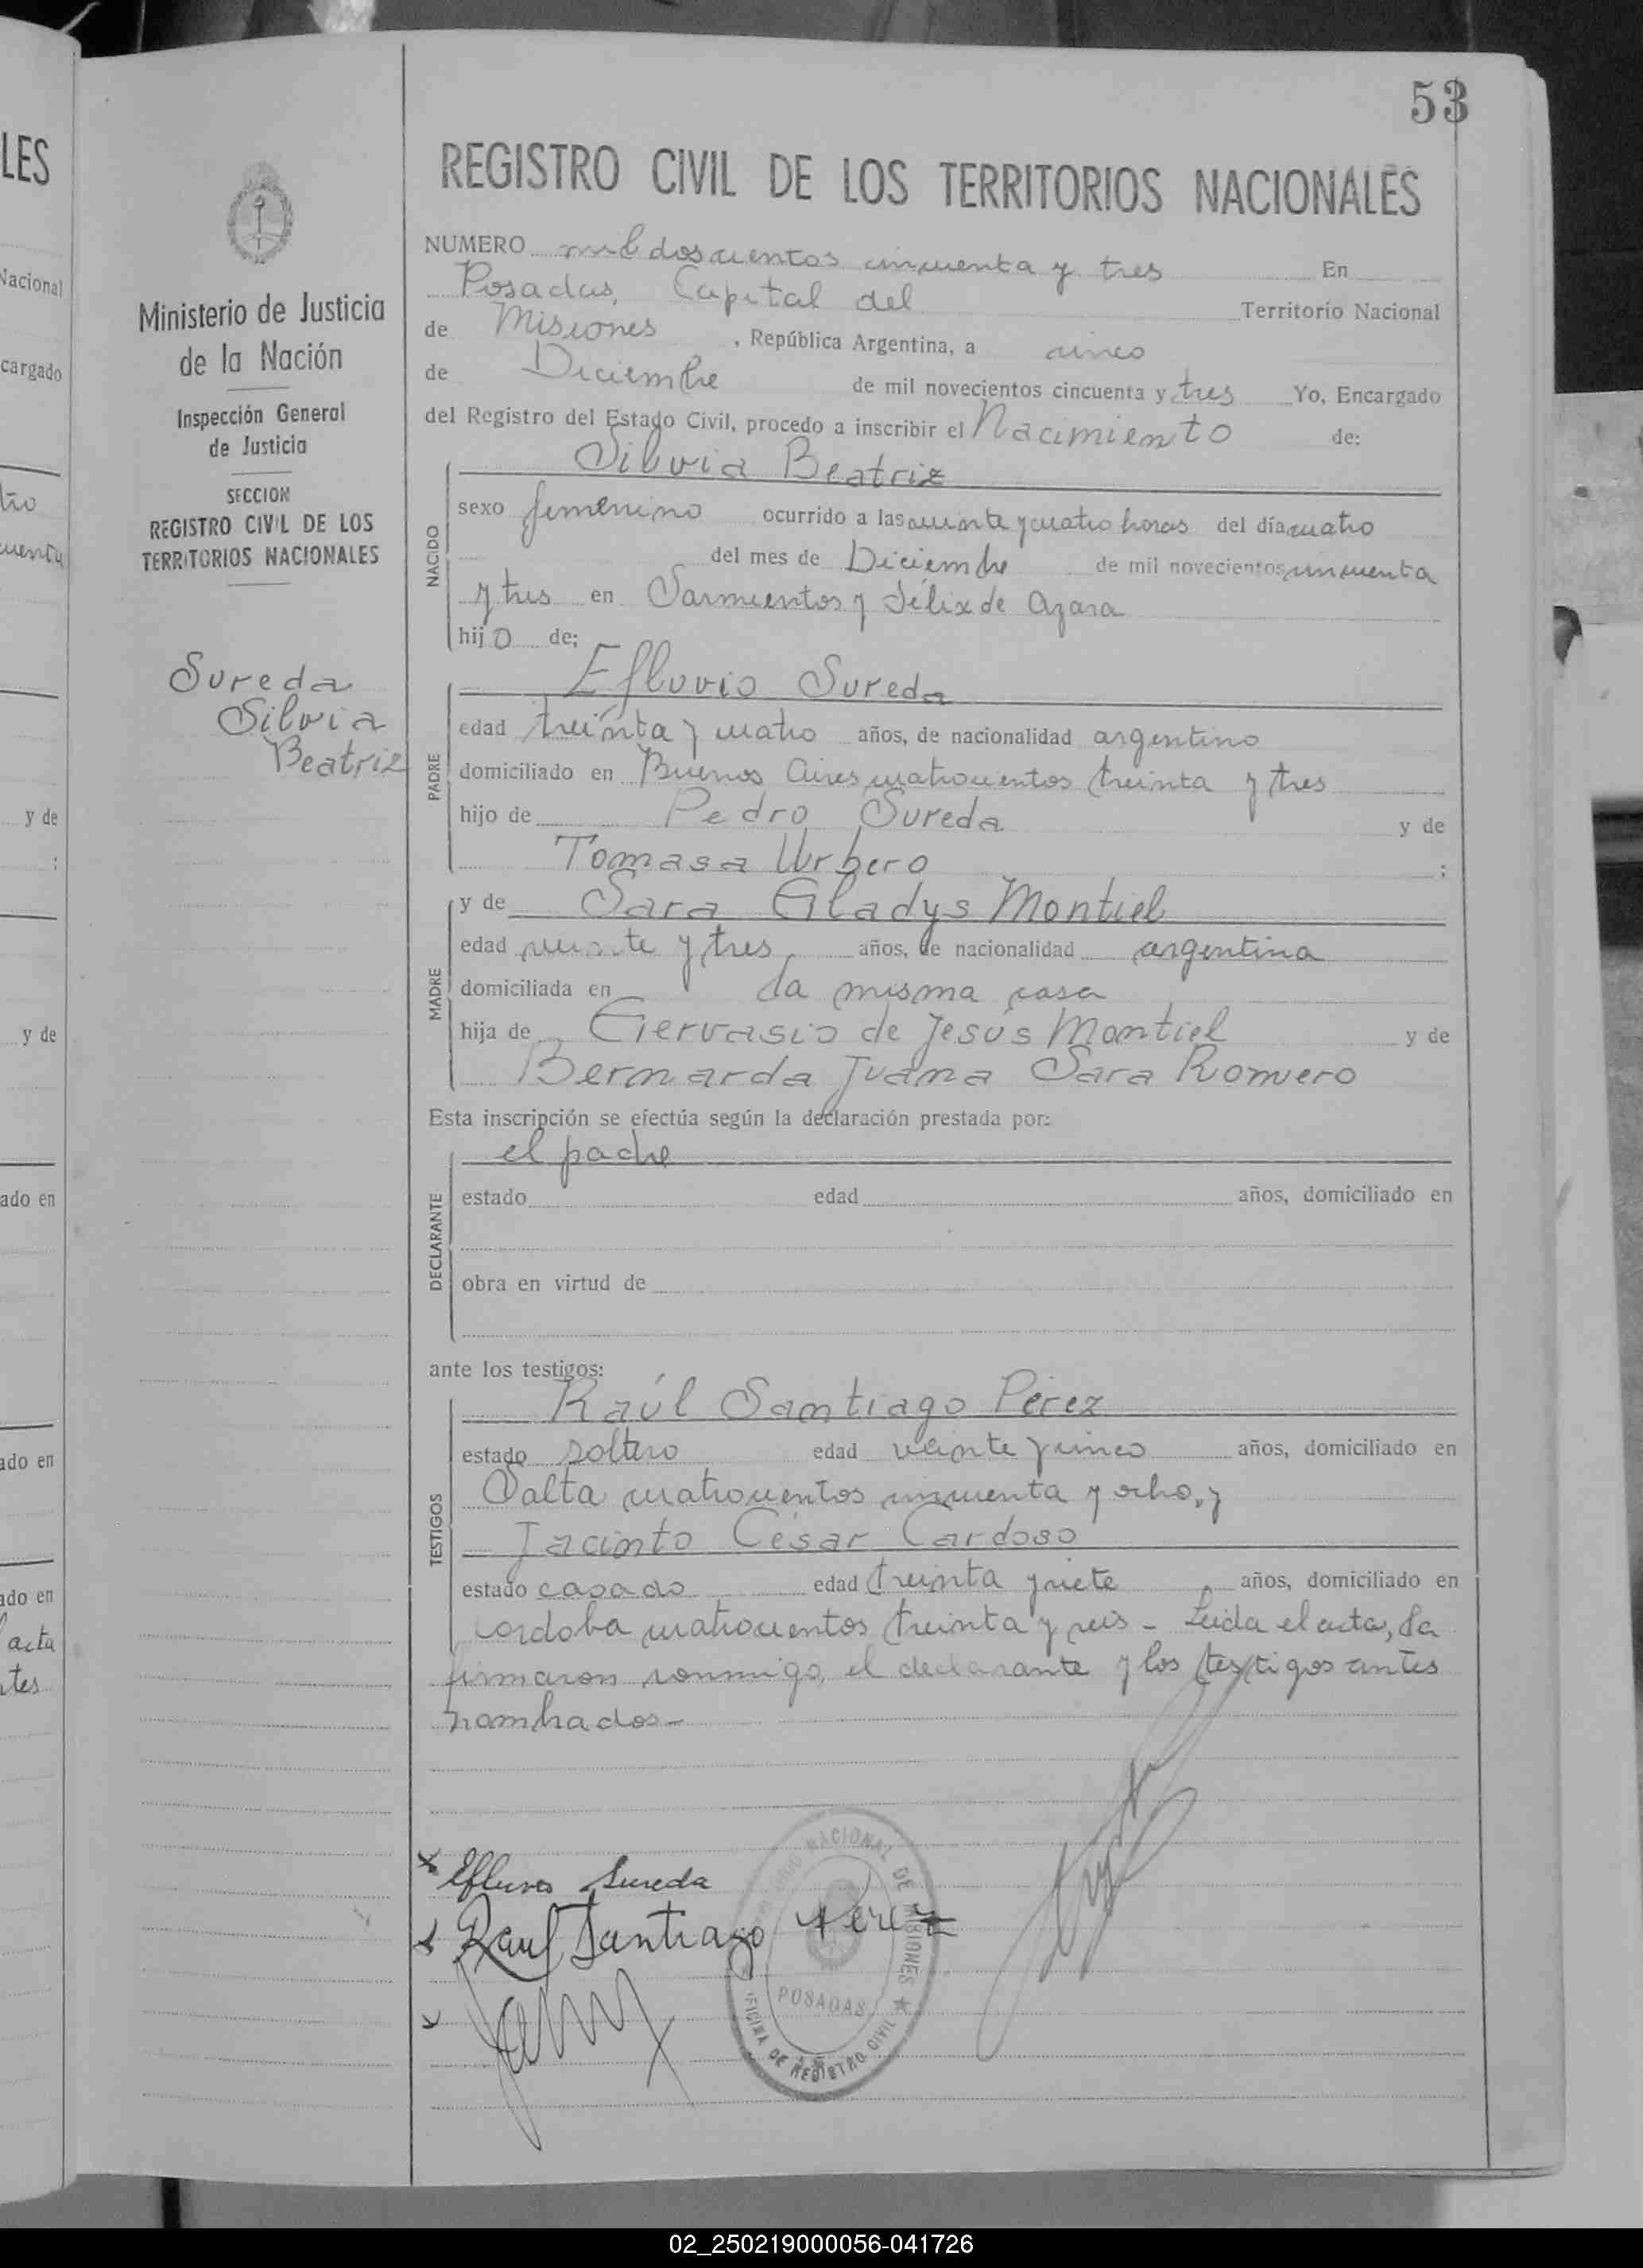 LES
Nacional
cargado
y de
:
y de
ado en
ado en
ado en
acta
tes
53
Ministerio de Justicia
de la Nación
Inspección General
de Justicia
SECCION
REGISTRO CIVIL DE LOS
TERRITORIOS NACIONALES
Sureda
Silvia
Beatriz
REGISTRO CIVIL DE LOS TERRITORIOS NACIONALES
NUMERO mil doscientos cincuenta y tres En
Posadas, Capital del Territorio Nacional
de Misiones, República Argentina, a cinco
de Diciembre de mil novecientos cincuenta y tres Yo, Encargado
del Registro del Estado Civil, procedo a inscribir el Nacimiento de:
Silvia Beatriz
NACIDO
sexo femenino ocurrido a las veinte y cuatro horas del día cuatro
del mes de Diciembre de mil novecientos cincuenta
y tres en Sarmientos y Félix de Azara
hijo de:
Efluvio Sureda
PADRE
edad treinta y cuatro años, de nacionalidad argentino
domiciliado en Buenos Aires cuatrocientos treinta y tres
hijo de Pedro Sureda y de
Tomasa Urbero ;
y de Sara Gladys Montiel
MADRE
edad veinte y tres años, de nacionalidad argentina
domiciliada en la misma casa
hija de Gervasio de Jesús Montiel y de
Bernarda Juana Sara Romero
Esta inscripción se efectúa según la declaración prestada por:
el padre
DECLARANTE
estado edad años, domiciliado en
obra en virtud de
ante los testigos:
Raúl Santiago Pérez
TESTIGOS
estado soltero edad veinte y cinco años, domiciliado en
Salta cuatrocientos cincuenta y ocho, y
Jacinto César Cardoso
estado casado edad treinta y siete años, domiciliado en
Cordoba cuatrocientos treinta y seis - Leida el acta, la
firmaron conmigo, el declarante y los testigos antes
nombrados -
Efluvio Sureda
Raul Santiago Perez
NACIONAL DE MISIONES
POSADAS
OFICINA DE REGISTRO CIVIL
02_250219000056-041726